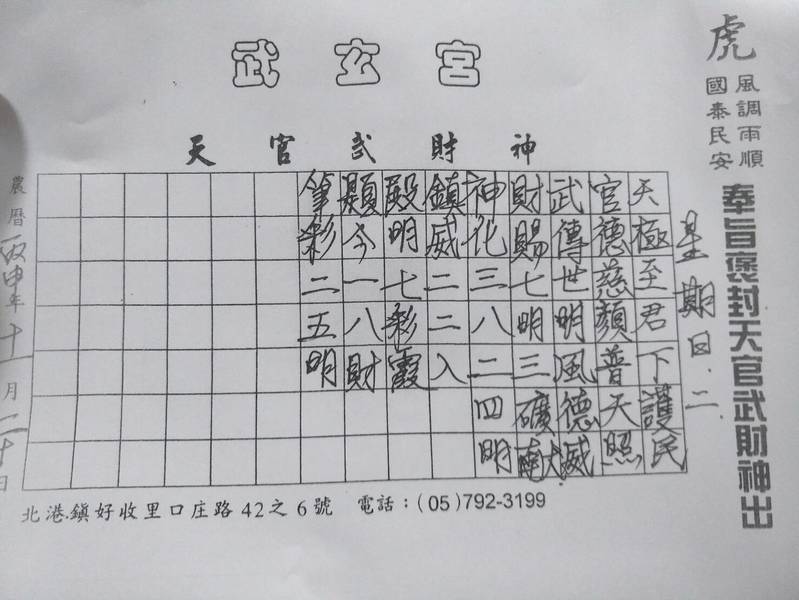 武玄宮
天官武財神
虎
風調雨順
國泰民安
奉旨褒封天官武財神出
星期日.二
天極至君下護民
官德慈顏普天照
武傳世明風德威
財賜七明三礦
神化三八二四明
鎮威二二入
殿明七彩霞
顯今一八財
筆彩二五明
農曆丙申年十一月二十日
北港鎮好收里口庄路42之6號 電話：(05)792-3199